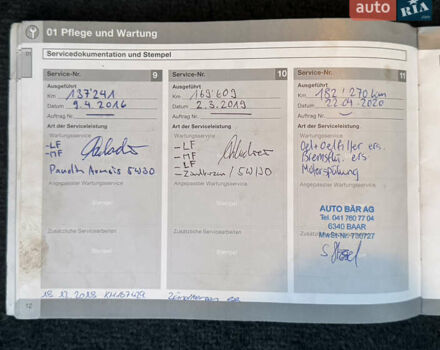 auto RIA
01 Pflege und Wartung
01
Servicedokumentation und Stempel
Service-Nr. 9
Ausgeführt
Km 137'241
Datum 9.4.2016
Auftrag Nr.
Art der Serviceleistung
Wartungsservice
-LF
-MF
5W30
Angepasster Wartungsservice
Stempel
Zusätzliche Servicearbeiten
Service-Nr. 10
Ausgeführt
Km 169'609
Datum 2.3.2019
Auftrag Nr.
Art der Serviceleistung
Wartungsservice
-LF
-MF
-LF
5W/30
Angepasster Wartungsservice
Stempel
Zusätzliche Servicearbeiten
Service-Nr. 11
Ausgeführt
Km 182'270 km
Datum 22.04.2020
Auftrag Nr.
Art der Serviceleistung
Wartungsservice
Oel+Oelfilter ers.
Bremsflü. ers
Motorspülung
Angepasster Wartungsservice
AUTO BÄR AG
Tel. 041 760 77 04
6340 BAAR
MwSt-Nr. 736727
12